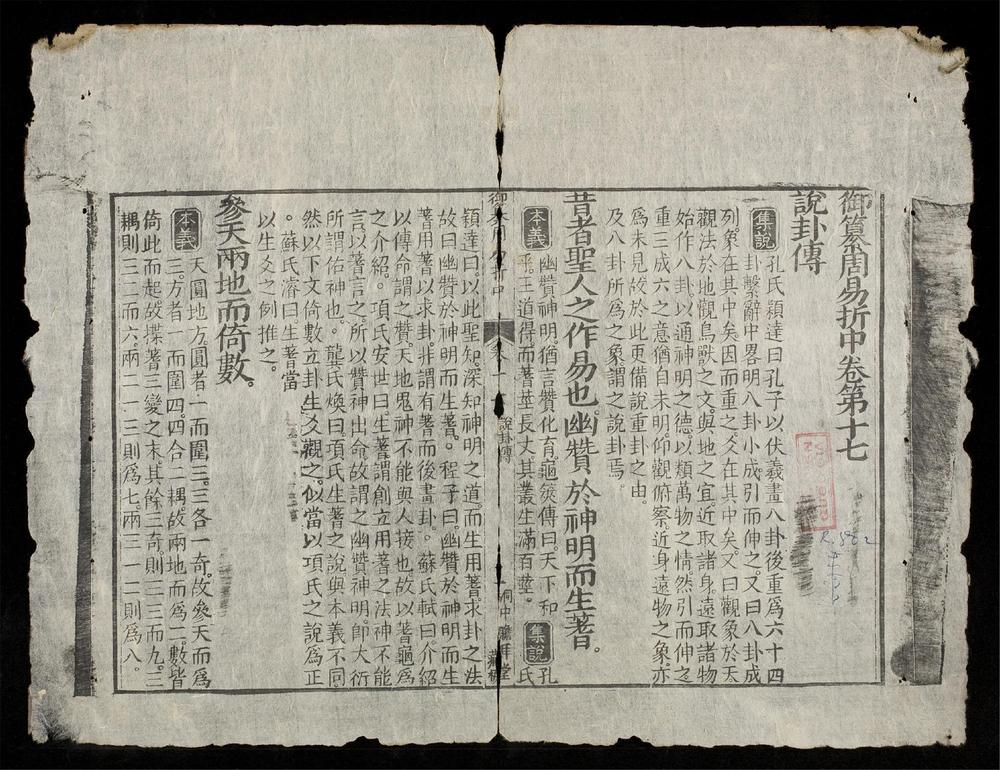 御纂周易折中卷第十七
說卦傳
集說 孔氏穎達曰孔子以伏羲畫八卦後重爲六十四
卦繫辭中畧明八卦小成引而伸之又曰八卦成
列象在其中矣因而重之爻在其中矣又曰觀象於天
觀法於地觀鳥獸之文與地之宜近取諸身遠取諸物
始作八卦以通神明之德以類萬物之情然引而伸之
重三成六之意猶自未明仰觀俯察近身遠物之象亦
爲未見故於此更備說重卦之由
及八卦所爲之象謂之說卦焉
昔者聖人之作易也幽贊於神明而生蓍。
本義 幽贊神明猶言贊化育龜筴傳曰天下和
平王道得而蓍莖長丈其叢生滿百莖。 集說 孔氏
穎達曰以此聖知深知神明之道而生用蓍求卦之法
故曰幽贊於神明而生蓍。程子曰幽贊於神明而生
蓍用蓍以求卦非謂有蓍而後畫卦。蘇氏軾曰介紹
以傳命謂之贊天地鬼神不能與人接也故以蓍龜爲
之介紹。項氏安世曰生蓍謂創立用蓍之法神不能
言以蓍言之所以贊神出命故謂之幽贊神明卽大衍
所謂佑神也。龔氏煥曰項氏生蓍之說與本義不同
然以下文倚數立卦生爻觀之似當以項氏之說爲正
。蘇氏濬曰生蓍當
以生爻之例推之。
參天兩地而倚數。
本義 天圓地方圓者一而圍三三各一奇故參天而爲
三方者一而圍四四合二耦故兩地而爲二數皆
倚此而起故揲蓍三變之末其餘三奇則三三而九三
耦則三二而六兩二一三則爲七兩三一二則爲八。
說卦傳